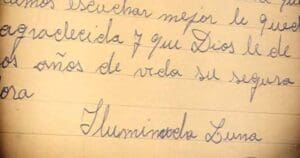 camos escuchar mejor le qued
agradecida y que Dios le de
os años de vida su segura
dosa
Iluminada Luna